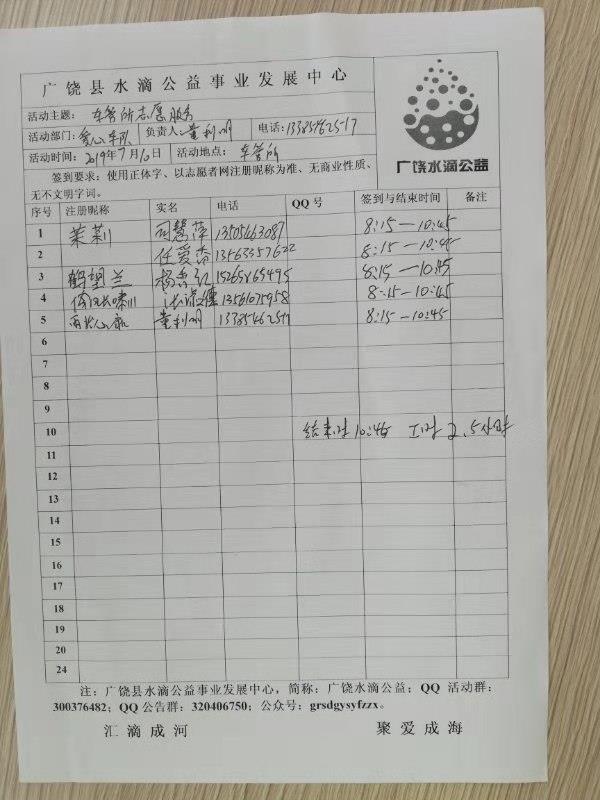 广饶县水滴公益事业发展中心
广饶水滴公益
活动主题: 车管所志愿服务
活动部门: 爱心车队 负责人: 董利明 电话: 13385462517
活动时间: 2019年7月10日 活动地点: 车管所
签到要求: 使用正体字、以志愿者网注册昵称为准、无商业性质、
无不文明字词。
序号 注册昵称 实名 电话 QQ 号 签到与结束时间 备注
1 茉莉 司慧萍 13505463087 8:15—10:45
2 任爱香 13563357622 8:15—10:45
3 鹤望兰 杨 15265 8:15—10:45
4 8:15—10:45
5 董利明 13385462517 8:15—10:45
6
7
8
9
10 结束时 10:45 工时 2.5小时
11
12
13
14
15
16
17
18
19
20
24
注: 广饶县水滴公益事业发展中心, 简称: 广饶水滴公益; QQ 活动群:
300376482; QQ 公告群: 320406750; 公众号: grsdgysyfzzx。
汇滴成河 聚爱成海